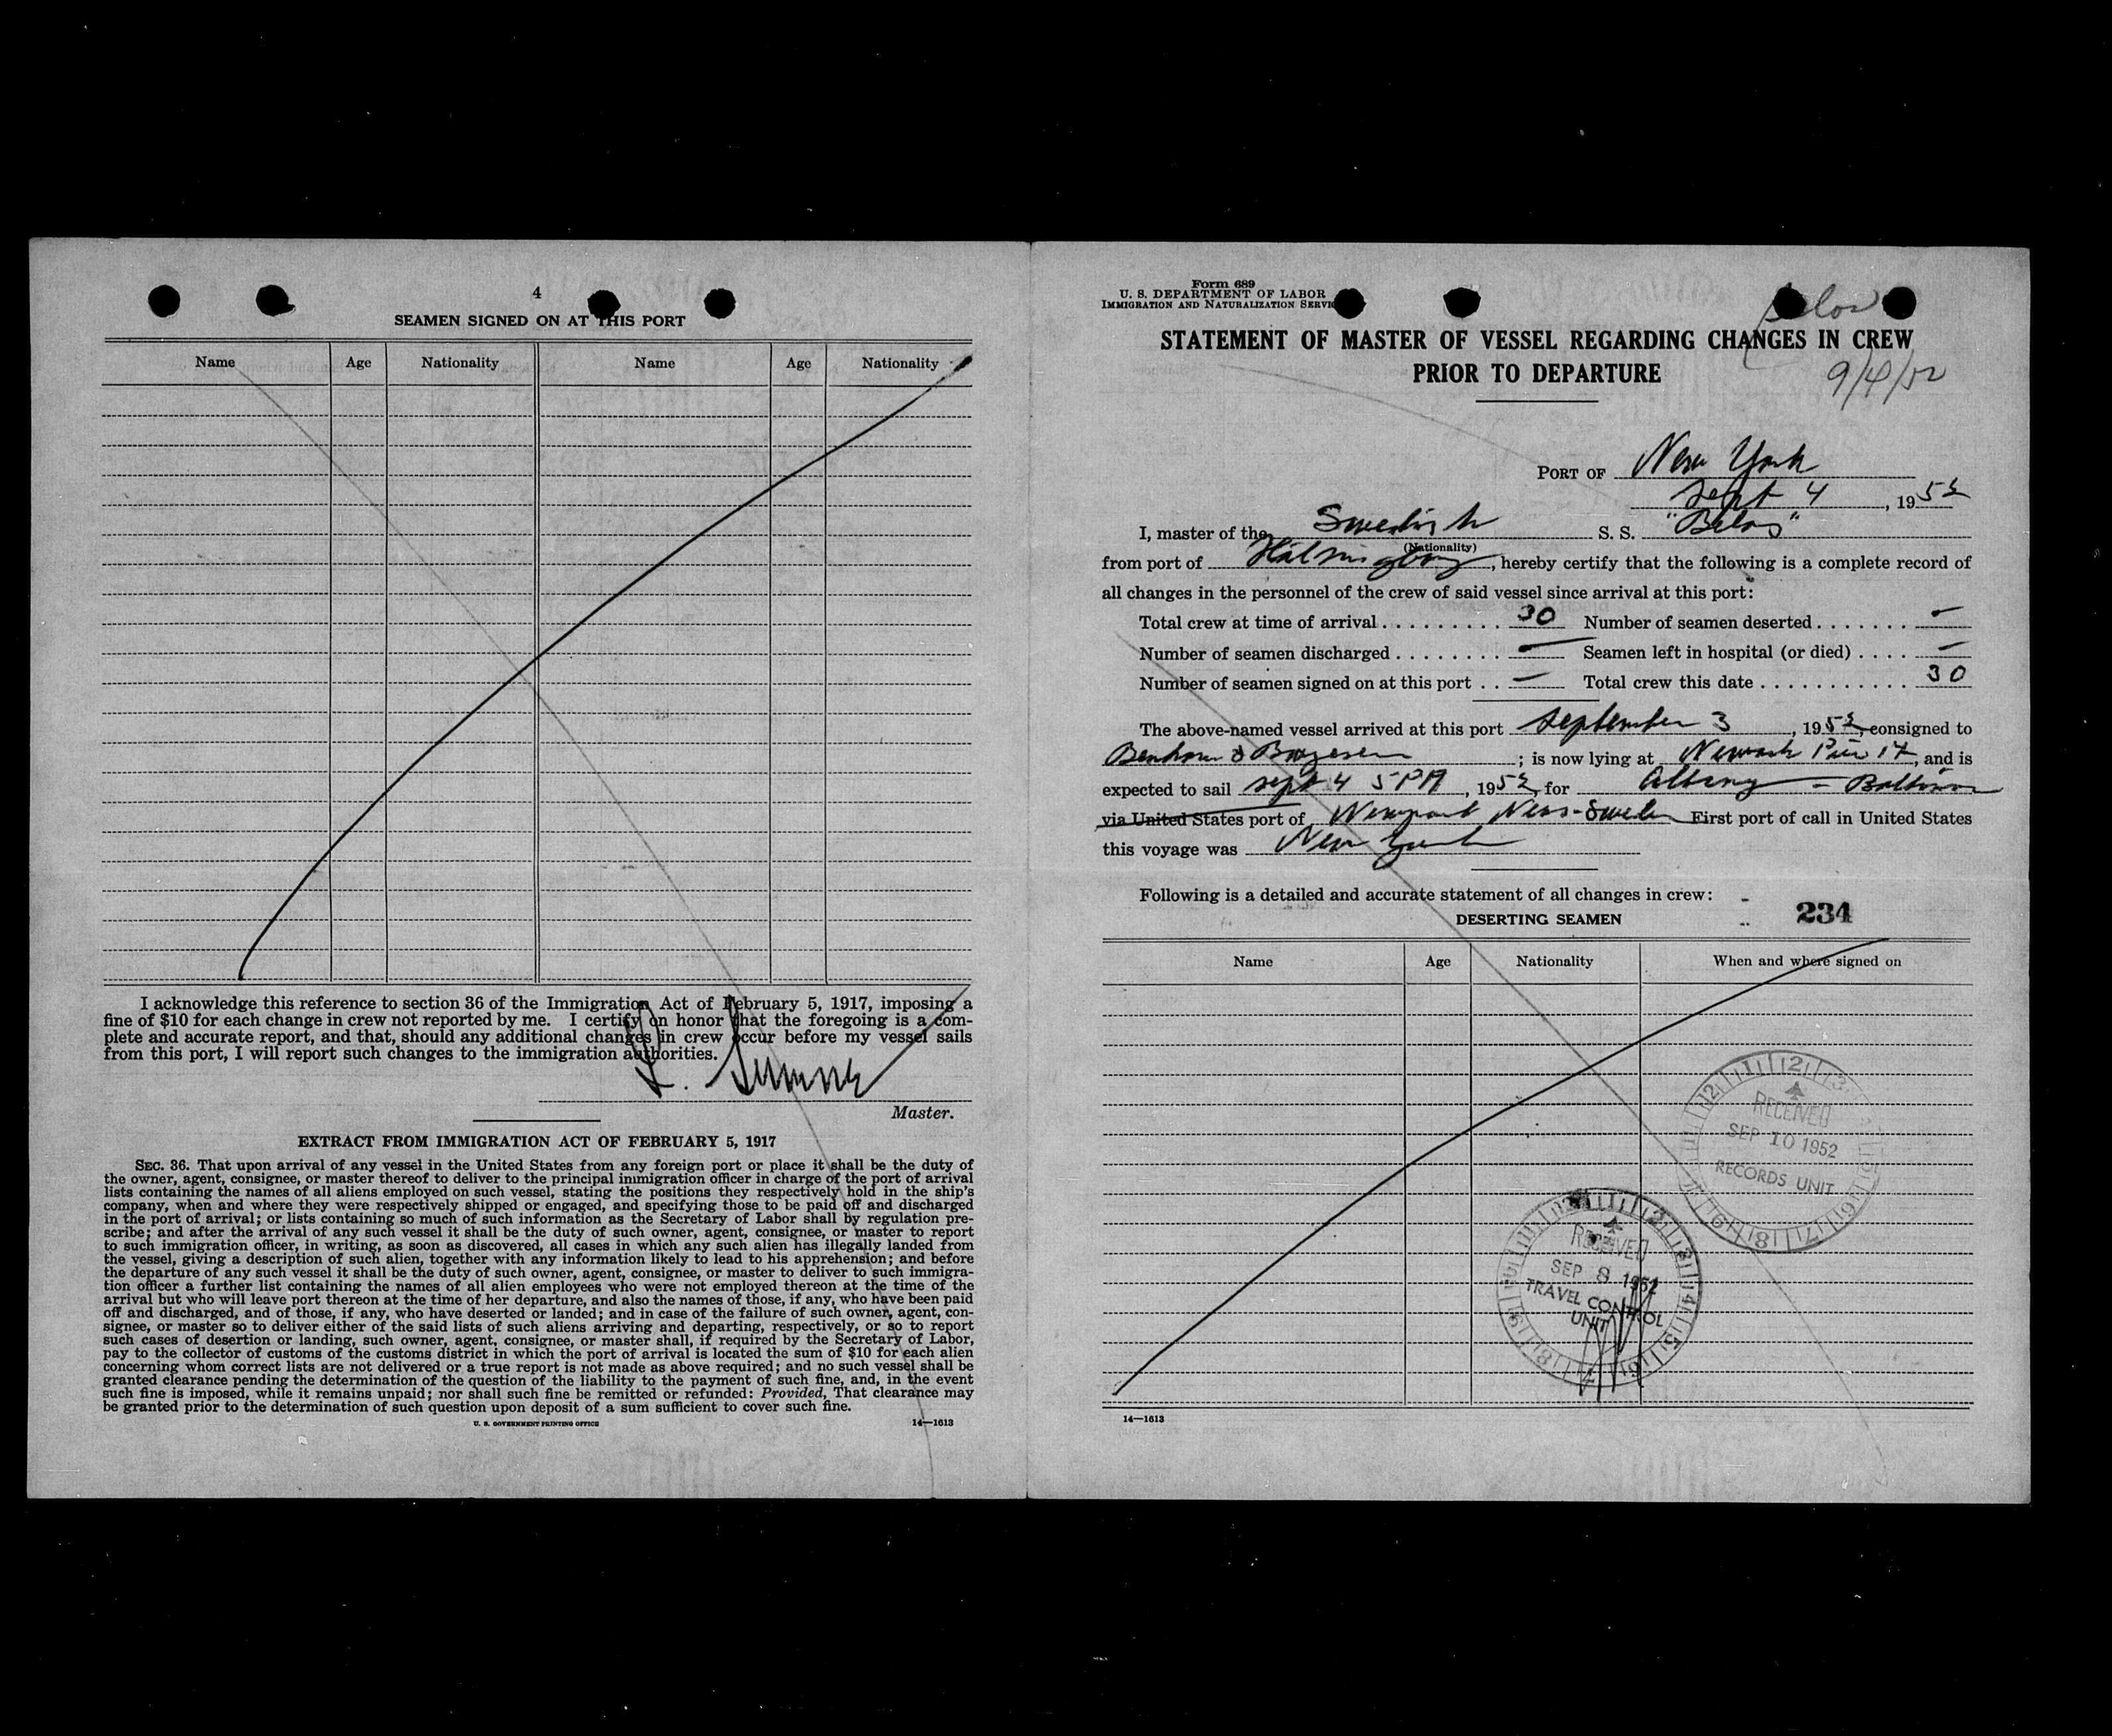 4
SEAMEN SIGNED ON AT THIS PORT
Name Age Nationality Name Age Nationality
I acknowledge this reference to section 36 of the Immigration Act of February 5, 1917, imposing a
fine of $10 for each change in crew not reported by me. I certify on honor that the foregoing is a com-
plete and accurate report, and that, should any additional changes in crew occur before my vessel sails
from this port, I will report such changes to the immigration authorities.
Master.
EXTRACT FROM IMMIGRATION ACT OF FEBRUARY 5, 1917
SEC. 36. That upon arrival of any vessel in the United States from any foreign port or place it shall be the duty of
the owner, agent, consignee, or master thereof to deliver to the principal immigration officer in charge of the port of arrival
lists containing the names of all aliens employed on such vessel, stating the positions they respectively hold in the ship's
company, when and where they were respectively shipped or engaged, and specifying those to be paid off and discharged
in the port of arrival; or lists containing so much of such information as the Secretary of Labor shall by regulation pre-
scribe; and after the arrival of any such vessel it shall be the duty of such owner, agent, consignee, or master to report
to such immigration officer, in writing, as soon as discovered, all cases in which any such alien has illegally landed from
the vessel, giving a description of such alien, together with any information likely to lead to his apprehension; and before
the departure of any such vessel it shall be the duty of such owner, agent, consignee, or master to deliver to such immigra-
tion officer a further list containing the names of all alien employees who were not employed thereon at the time of the
arrival but who will leave port thereon at the time of her departure, and also the names of those, if any, who have been paid
off and discharged, and of those, if any, who have deserted or landed; and in case of the failure of such owner, agent, con-
signee, or master so to deliver either of the said lists of such aliens arriving and departing, respectively, or so to report
such cases of desertion or landing, such owner, agent, consignee, or master shall, if required by the Secretary of Labor,
pay to the collector of customs of the customs district in which the port of arrival is located the sum of $10 for each alien
concerning whom correct lists are not delivered or a true report is not made as above required; and no such vessel shall be
granted clearance pending the determination of the question of the liability to the payment of such fine, and, in the event
such fine is imposed, while it remains unpaid; nor shall such fine be remitted or refunded: Provided, That clearance may
be granted prior to the determination of such question upon deposit of a sum sufficient to cover such fine.
U. S. GOVERNMENT PRINTING OFFICE 14—1613
Form 689
U. S. DEPARTMENT OF LABOR
IMMIGRATION AND NATURALIZATION SERVICE
Belos
STATEMENT OF MASTER OF VESSEL REGARDING CHANGES IN CREW
PRIOR TO DEPARTURE
9/4/52
PORT OF New York
Sept 4, 1952
I, master of the Swedish S. S. "Belos"
(Nationality)
from port of Hälsingborg, hereby certify that the following is a complete record of
all changes in the personnel of the crew of said vessel since arrival at this port:
Total crew at time of arrival 30 Number of seamen deserted —
Number of seamen discharged — Seamen left in hospital (or died) —
Number of seamen signed on at this port — Total crew this date 30
The above-named vessel arrived at this port September 3, 1952, consigned to
; is now lying at Newark Pier 17, and is
expected to sail Sept 4 5 PM, 1952, for Albany – Baltimore
via United States port of Newport News-Sweden First port of call in United States
this voyage was New York
Following is a detailed and accurate statement of all changes in crew:
234
DESERTING SEAMEN
Name Age Nationality When and where signed on
RECEIVED
SEP 10 1952
RECORDS UNIT
RECEIVED
SEP 8 1952
TRAVEL CONTROL
UNIT
14—1613